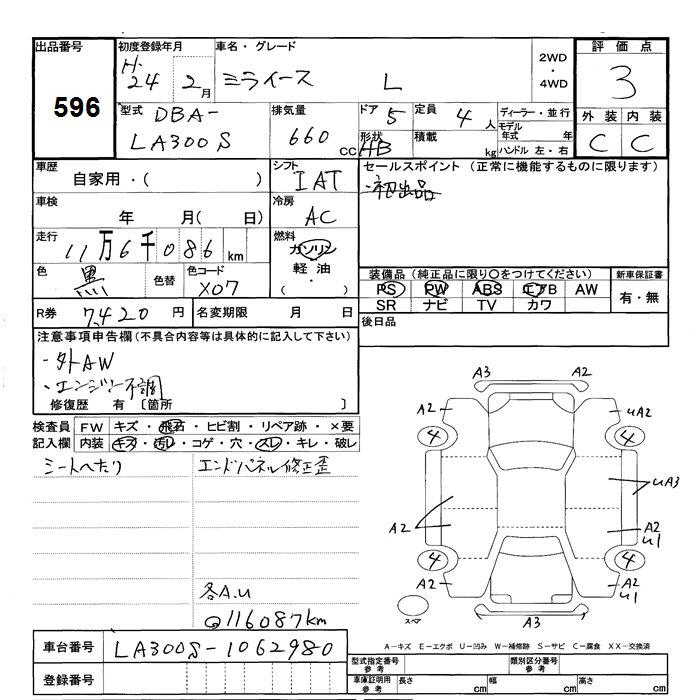 出品番号
596
初度登録年月
H.24 2月
車名・グレード
ミライース L
2WD
・
4WD
評価点
3
型式
DBA-
LA300S
排気量
660 cc
ドア 5
形状
HB
定員 4 人
積載 kg
ディーラー・並行
モデル
年式 年
ハンドル 左・右
外装 内装
C C
車歴
自家用・( )
シフト
IAT
セールスポイント (正常に機能するものに限ります)
・初出品
車検
年 月( 日)
冷房
AC
走行
11万6千086km
燃料
ガソリン
軽油
( ・ )
色
黒
色替
色コード
X07
装備品(純正品に限り○をつけてください)
PS PW ABS エアB AW
SR ナビ TV カワ
新車保証書
有・無
R券 7,420 円
名変期限 月 日
後日品
注意事項申告欄(不具合内容等は具体的に記入して下さい)
・外AW
・エンジン不調
修復歴 有 [箇所 ]
検査員
記入欄
FW キズ・飛石・ヒビ割・リペア跡・×要
内装 キズ・汚レ・コゲ・穴・スレ・キレ・破レ
シートへたり
エンドパネル修正歪
各A.U
116087km
A3 A2
A2 uA2
4 4
uA3
A2 A2
u1
4 4
A2 A2
u1
スペア
A3
A-キズ E-エクボ U-凹み W-補修跡 S-サビ C-腐食 XX-交換済
車台番号 LA300S-1062980
登録番号
型式指定番号
参考
類別区分番号
参考
車庫証明用
参考
長さ cm 幅 cm 高さ cm